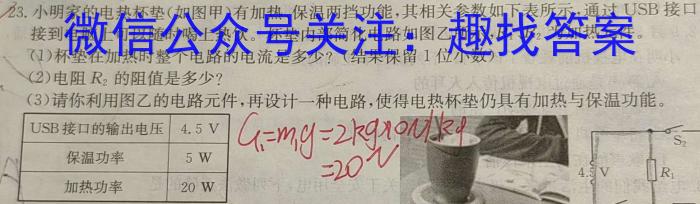 23. 小明家的电热杯垫(如图甲)有加热、保温两挡功能,其相关参数如下表所示,通过 USB 接口
微信公众号关注:趣找答案
(1)杯垫在加热时整个电路的电流是多少?(结果保留 1 位小数)
(2)电阻 R₂ 的阻值是多少?
(3)请你利用图乙的电路元件,再设计一种电路,使得电热杯垫仍具有加热与保温功能。
USB 接口的输出电压 4.5 V
保温功率 5 W
加热功率 20 W
G₁=m₁g=2kg×10N/kg
=20N
S₂
4.5 V
R₁